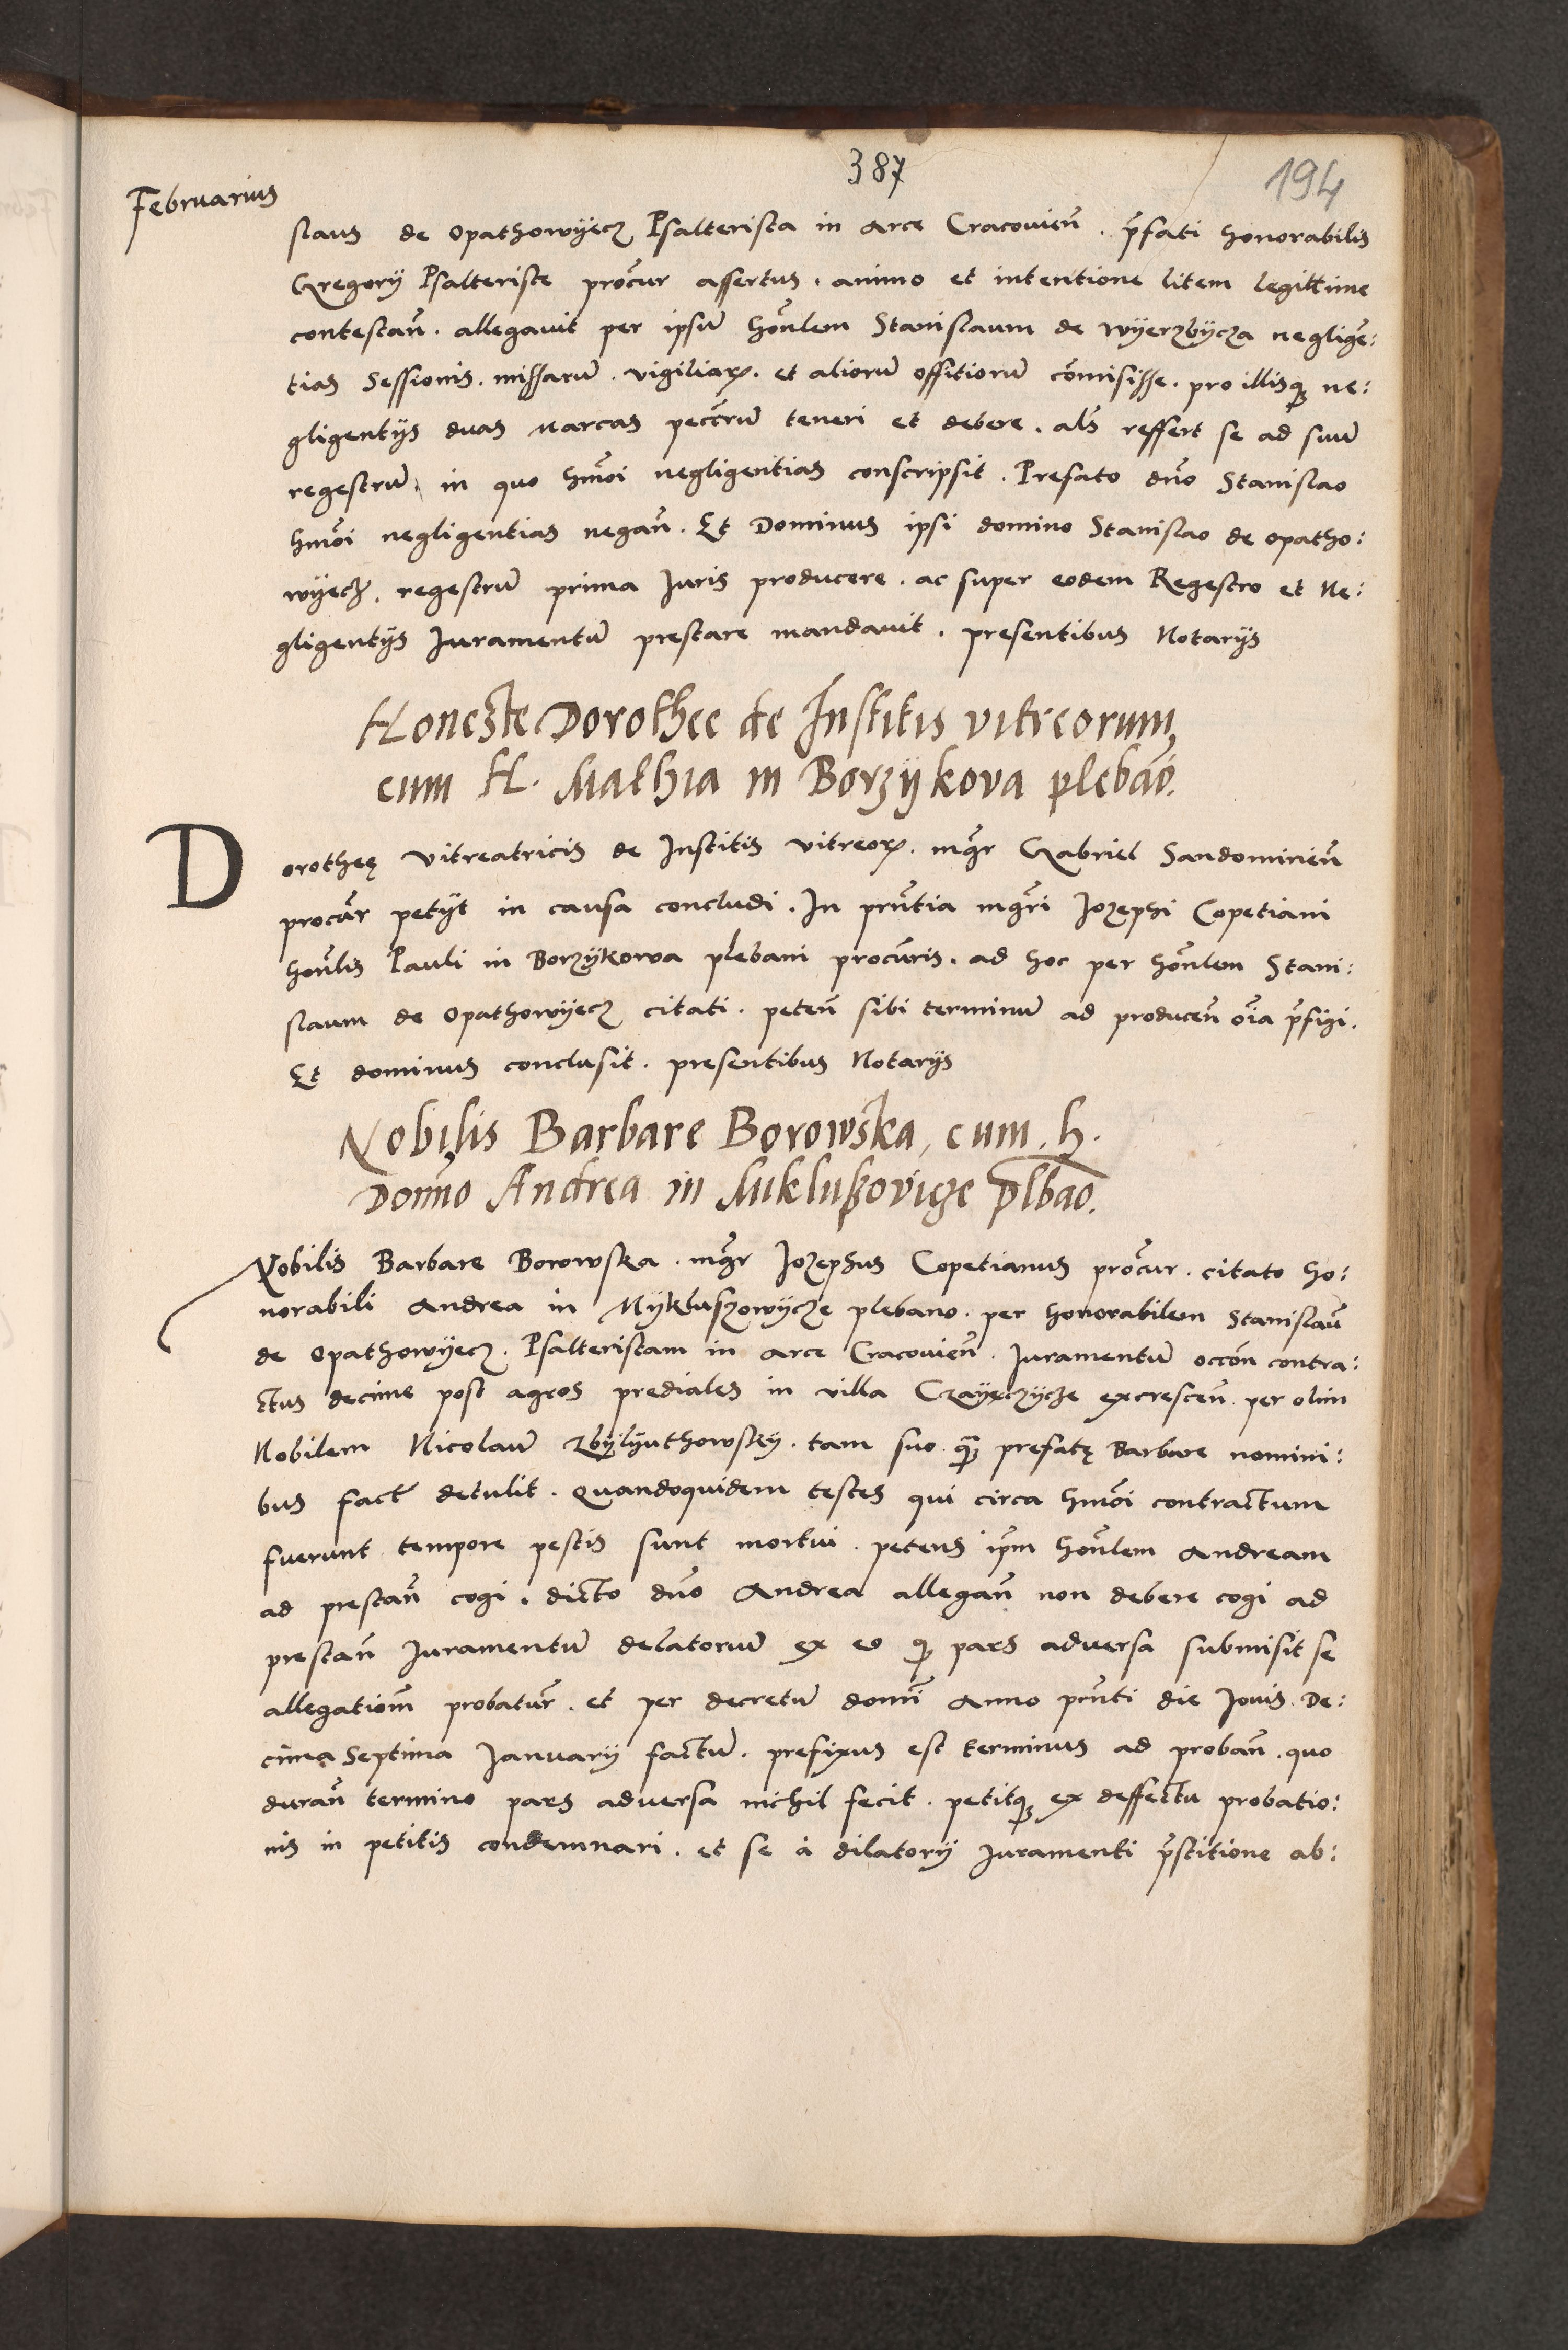 387
194
Februarius
slaus de Opathowyecz Psalterista in Arce Cracovien̄. p̄fati honorabilis
Gregorij Psalteriste procur̄ assertus. animo et intentione litem legittime
contestan̄. allegavit per ipsum̄ honlem̄ Stanislaum de Wyerzbycza neglige᷉:
tias Sessionis. missarum̄. vigiliaꝝ. et aliorum̄ offitiorum̄ com̄isisse. pro illisqꝫ ne:
gligentijs duas marcas pecc̄rum̄ teneri et debere. als̄ reffert se ad suum̄
regestrum̄. in quo hmōi negligentias conscripsit. Prefato dn̄o Stanislao
hmōi negligentias negan̄. Et Dominus ipsi domino Stanislao de Opatho:
wyecz. regestrum̄ prima Juris producere. ac super eodem Regestro et Ne:
gligentijs Juramentum̄ prestare mandavit. presentibus Notarijs
Honeste Dorothee de Institis vitreorum,
cum H. Mathia in Borzykova plebāo.
Dorotheę Vitreatricis de Institis vitreoꝝ. mḡr Gabriel Sandomirien̄
procur̄ petijt in causa concludi. In prn̄tia mḡri Jozephi Copetiani
honl̄is Pauli in Borzykowa plebani procur̄is. ad hoc per honl̄em Stani:
slaum de Opathowyecz citati. peten̄ sibi terminum̄ ad producen̄ oīa p̄figi.
Et dominus conclusit. presentibus Notarijs
Nobilis Barbare Borowska, cum h.
Domi̅no Andrea in Mikluszovicze plbāo.
Nobilis Barbare Borowska. mḡr Jozephus Copetianus procur̄. citato ho:
norabili Andrea in Mykluszowycze plebano. per honorabilem Stanislau᷉
de Opathowyecz. Psalteristam in Arce Cracovien̄. Juramentum̄ occōn contra:
ctus decime post agros prediales in villa Czayęczycze excrescen̄. per olim
Nobilem Nicolaum̄ Zbylyuthowsky. tam suo qꝫ prefatę Barbare nomini:
bus fact̄ detulit. Quandoquidem testes qui circa hmōi contractum
fuerunt tempore pestis sunt mortui. petens ip̄m honl̄em Andream
ad prestan̄ cogi. dicto dn̄o Andrea allegan̄ non debere cogi ad
prestan̄ Juramentum̄ delatorum̄ ex eo qꝫ pars adversa submisit se
allegatiom̄ probatur̄. et per decretum̄ domi̅ Anno prn̄ti die Jovis De:
cima Septima Januarij factum̄. prefixus est terminus ad proban̄. quo
duran̄ termino pars adversa nichil fecit. petitqꝫ ex deffectu probatio:
nis in petitis condemnari. et se à dilatorij Juramenti p̄stitione ab: